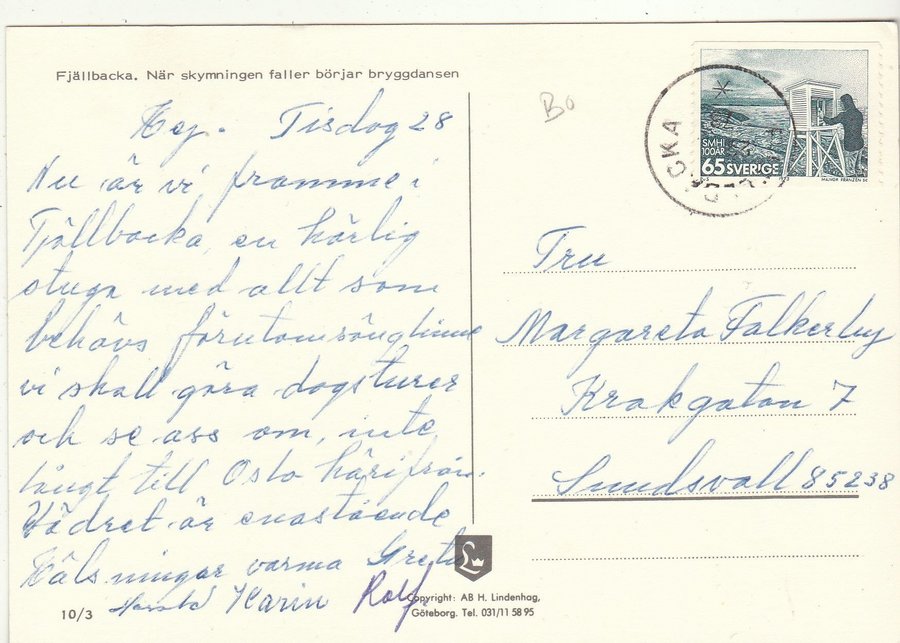 Fjällbacka. När skymningen faller börjar bryggdansen
Hej. Tisdag 28
Nu är vi framme i
Fjällbacka, en härlig
stuga med allt som
behövs förutom sänglinne
vi skall göra dagsturer
och se oss om, inte
långt till Oslo härifrån.
Vädret är enastående
Hälsningar varma Greta
Harold Karin Rolf.
10/3
Copyright: AB H. Lindenhag,
Göteborg. Tel. 031/11 58 95
Bo
SMHI
100 ÅR
65 SVERIGE
MAJVOR FRANZÉN SC
Fru
Margareta Falkerby
Krakgatan 7
Sundsvall 85238